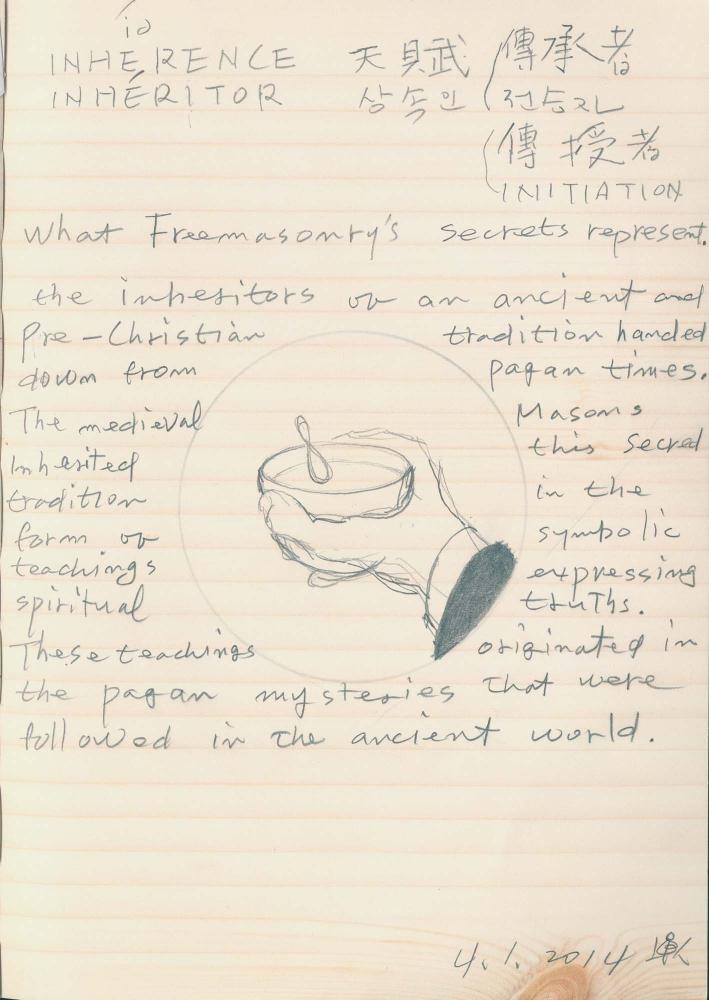 io
INHERENCE 天賦 傳承者
INHÉRITOR 상속인 전승자
傳授者
INITIATION
What Freemasonry's secrets represent.
the inheritors of an ancient and
Pre-Christian tradition handed
down from pagan times.
The medieval Masons
inherited this secred
tradition in the
form of symbolic
teachings expressing
spiritual truths.
These teachings originated in
the pagan mysteries that were
followed in the ancient world.
4.1.2014